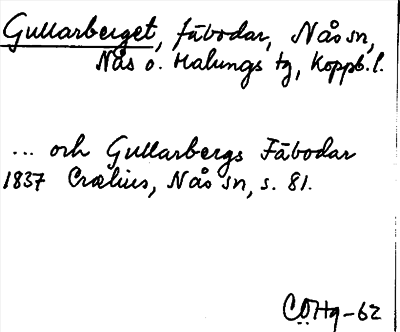 Gullarberget, fäbodar, Nås sn,
Nås o. Malungs tg, Koppb. l.
... och Gullarbergs Fäbodar
1837 Crælius, Nås sn, s. 81.
CÖHg-62